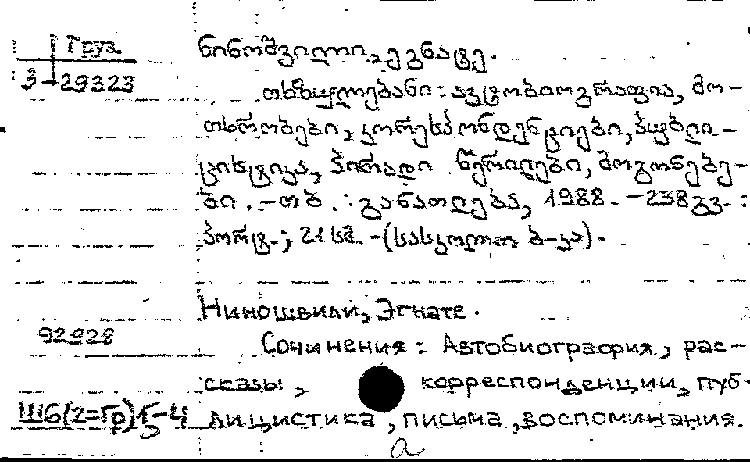 Груз.
3-29323
ნინოშვილი, ეგნატე.
თხზულებანი : ავტობიოგრაფია, მო-
თხრობები, კორესპონდენციები, პუბლი-
ცისტიკა, პირადი წერილები, მოგონებე-
ბი. - თბ. : განათლება, 1988. - 238 გვ. :
პორტ.; 21 სმ. - (სასკოლო ბ-კა).
Ниношвили, Эгнате.
92928
Сочинения : Автобиография, рас-
сказы, корреспонденции, пуб-
Ш6(2=Гр)1-4 лицистика, письма, воспоминания.
a